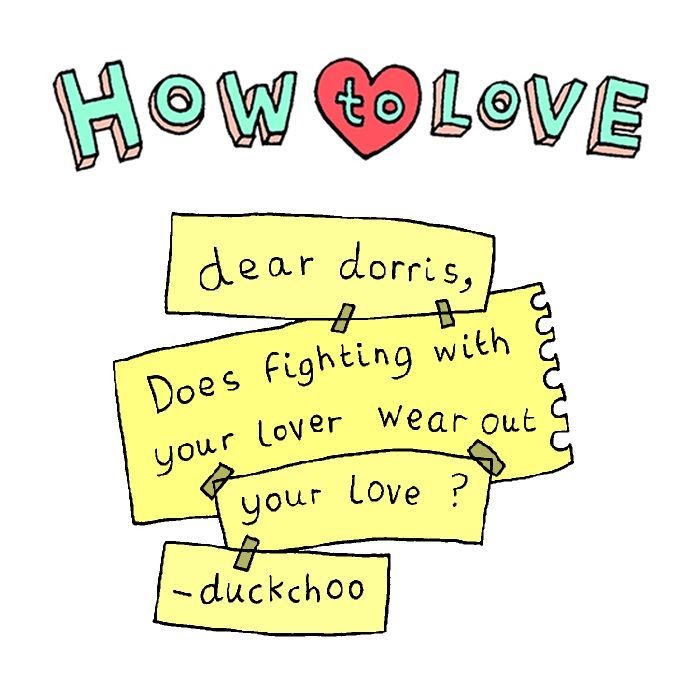 HOW to LOVE
dear dorris,
Does fighting with
your lover wear out
your love ?
-duckchoo